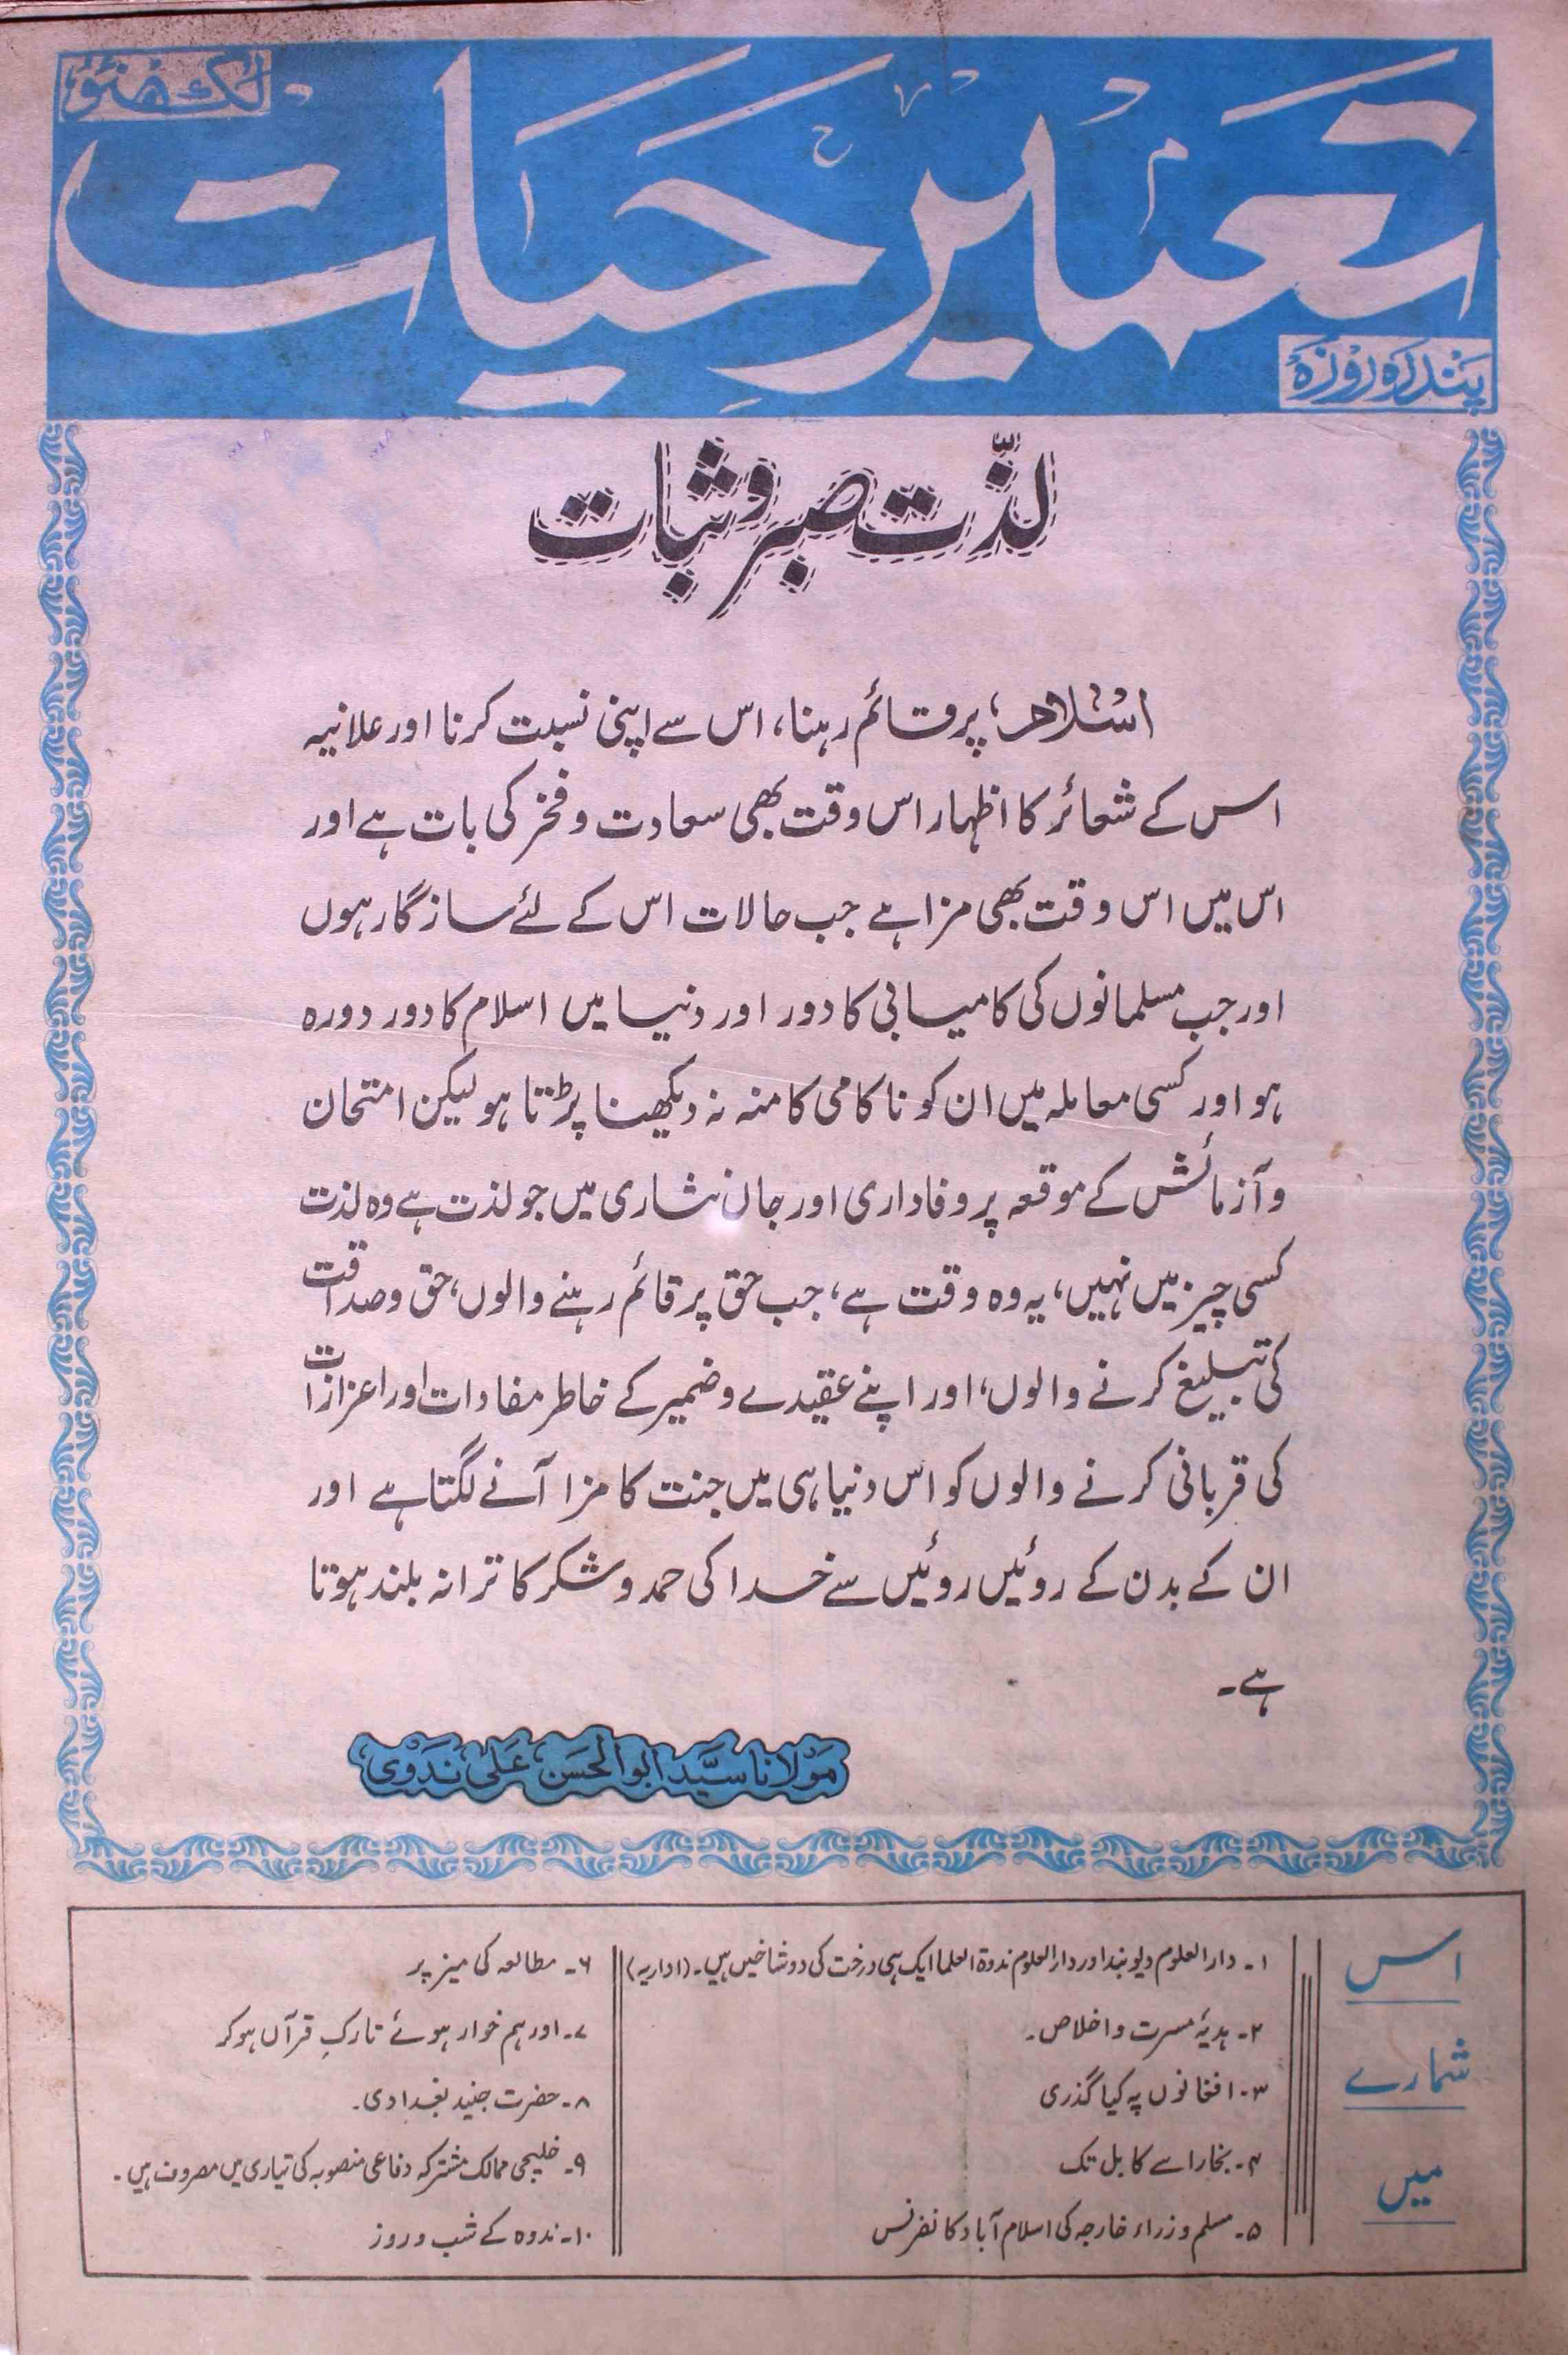 لکھنؤ
تعمیر حیات
پندرہ روزہ
لذّت صبر و ثبات
اسلام، پر قائم رہنا، اس سے اپنی نسبت کرنا اور علانیہ
اس کے شعائر کا اظہار اس وقت بھی سعادت و فخر کی بات ہے اور
اس میں اس وقت بھی مزا ہے جب حالات اس کے لئے سازگار ہوں
اور جب مسلمانوں کی کامیابی کا دور اور دنیا میں اسلام کا دور دورہ
ہو اور کسی معاملہ میں ان کو ناکامی کا منہ نہ دیکھنا پڑتا ہو لیکن امتحان
و آزمائش کے موقعہ پر وفاداری اور جاں نثاری میں جو لذت ہے وہ لذت
کسی چیز میں نہیں، یہ وہ وقت ہے، جب حق پر قائم رہنے والوں، حق و صداقت
کی تبلیغ کرنے والوں، اور اپنے عقیدے و ضمیر کے خاطر مفادات اور اعزازات
کی قربانی کرنے والوں کو اس دنیا ہی میں جنت کا مزا آنے لگتا ہے اور
ان کے بدن کے روئیں روئیں سے خدا کی حمد و شکر کا ترانہ بلند ہوتا
ہے۔
مولانا سیّد ابوالحسن علی ندوی
اس
شمارے
میں
۱۔ دارالعلوم دیوبند اور دارالعلوم ندوۃ العلما ایک ہی درخت کی دو شاخیں ہیں۔ (اداریہ)
۲۔ ہدیۂ مسرت و اخلاص۔
۳۔ افغانوں پہ کیا گذری
۴۔ بخارا سے کابل تک
۵۔ مسلم وزراء خارجہ کی اسلام آباد کانفرنس
۶۔ مطالعہ کی میز پر
۷۔ اور ہم خوار ہوئے تارکِ قرآں ہو کر
۸۔ حضرت جنید بغدادی۔
۹۔ خلیجی ممالک مشترکہ دفاعی منصوبہ کی تیاری میں مصروف ہیں۔
۱۰۔ ندوہ کے شب و روز